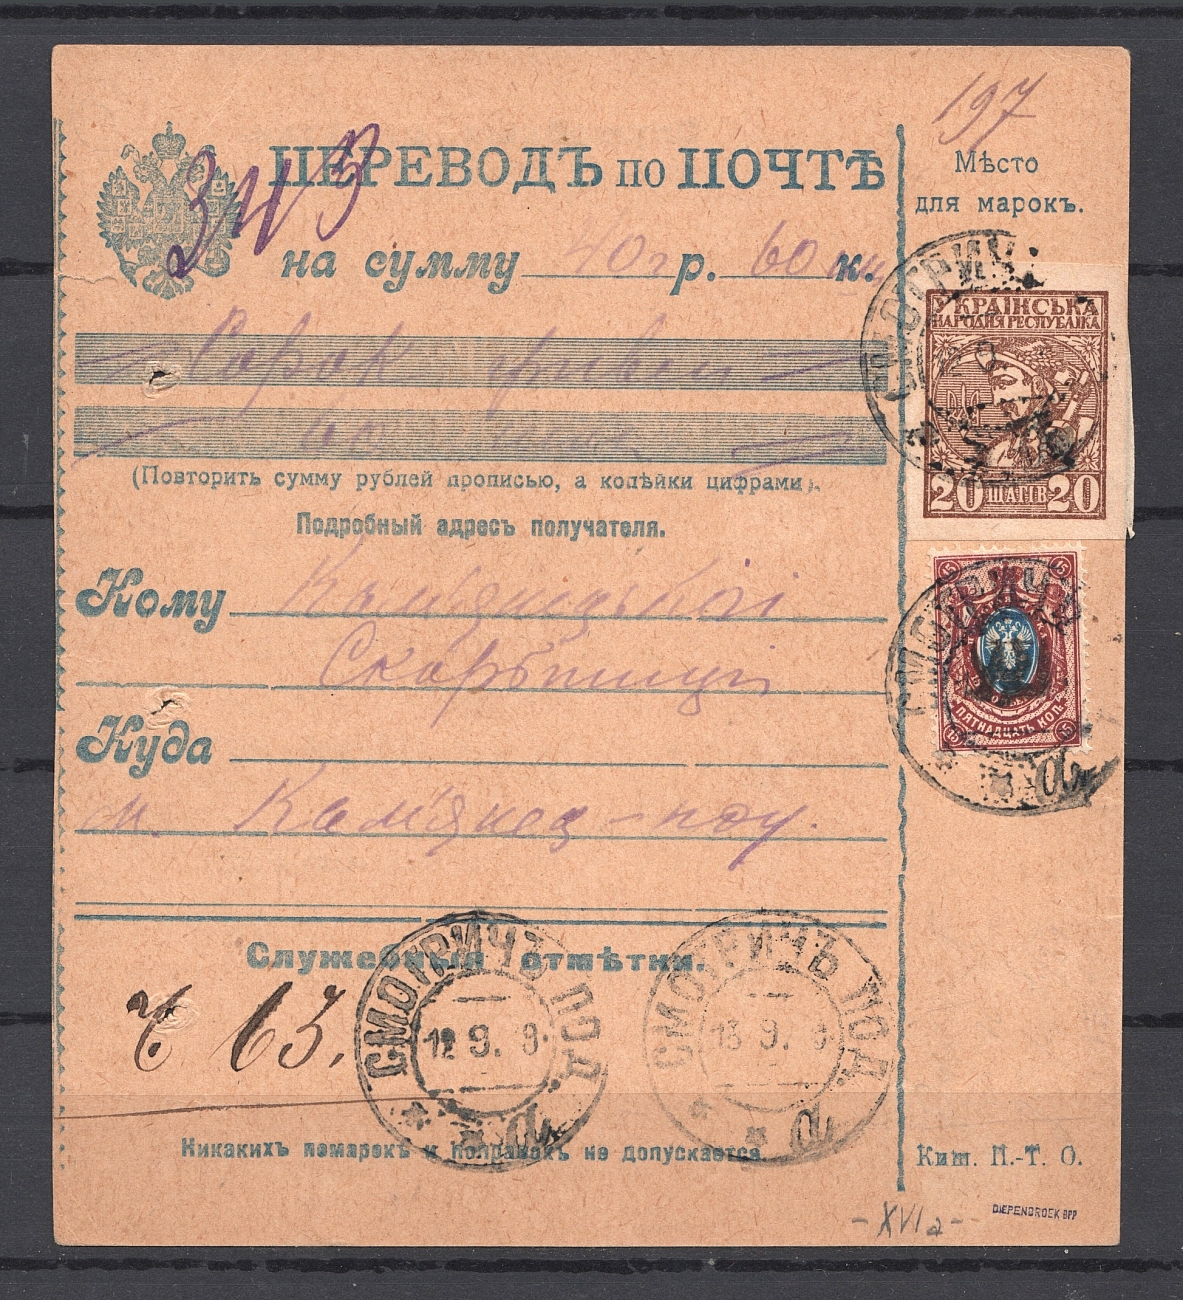 197
ПЕРЕВОДЪ по ПОЧТѢ
Мѣсто
для марокъ.
на сумму 40 г р. 60 к.
Сорок гривен
(Повторить сумму рублей прописью, а копѣйки цифрами).
УКРАЇНСЬКА
НАРОДНЯ РЕСПУБЛІКА
20 ШАГІВ 20
СМОТРИЧ
Подробный адресъ получателя.
Кому
Скарбниці
15 15
ПЯТНАДЦАТЬ КОП.
15 15
СМОТРИЧЪ
а
Куда
м. Кам'янец-под.
Служебныя отмѣтки.
63.
СМОТРИЧЪ ПОД.
12 9. 9.
а
СМОТРИЧЪ ПОД.
13 9. 9
а
Никакихъ помарокъ и поправокъ не допускается.
Киш. П.-Т. О.
-XVIa-
DIEPENBROEK BPP